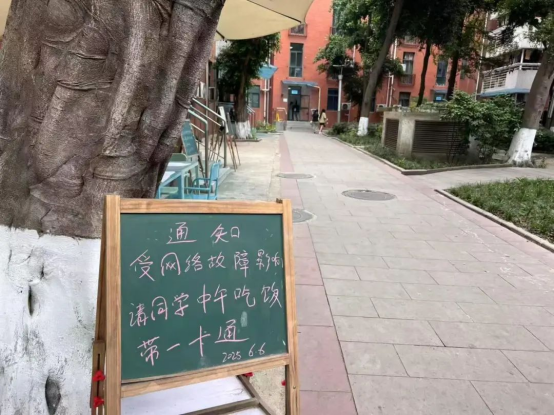 通知
受网络故障影响
请同学中午吃饭
第一卡通
2025 6.6